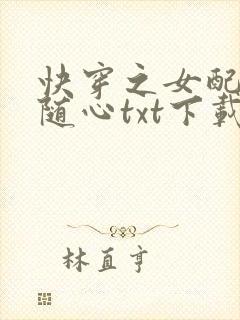 快穿之女配
随心txt下载
林直亨